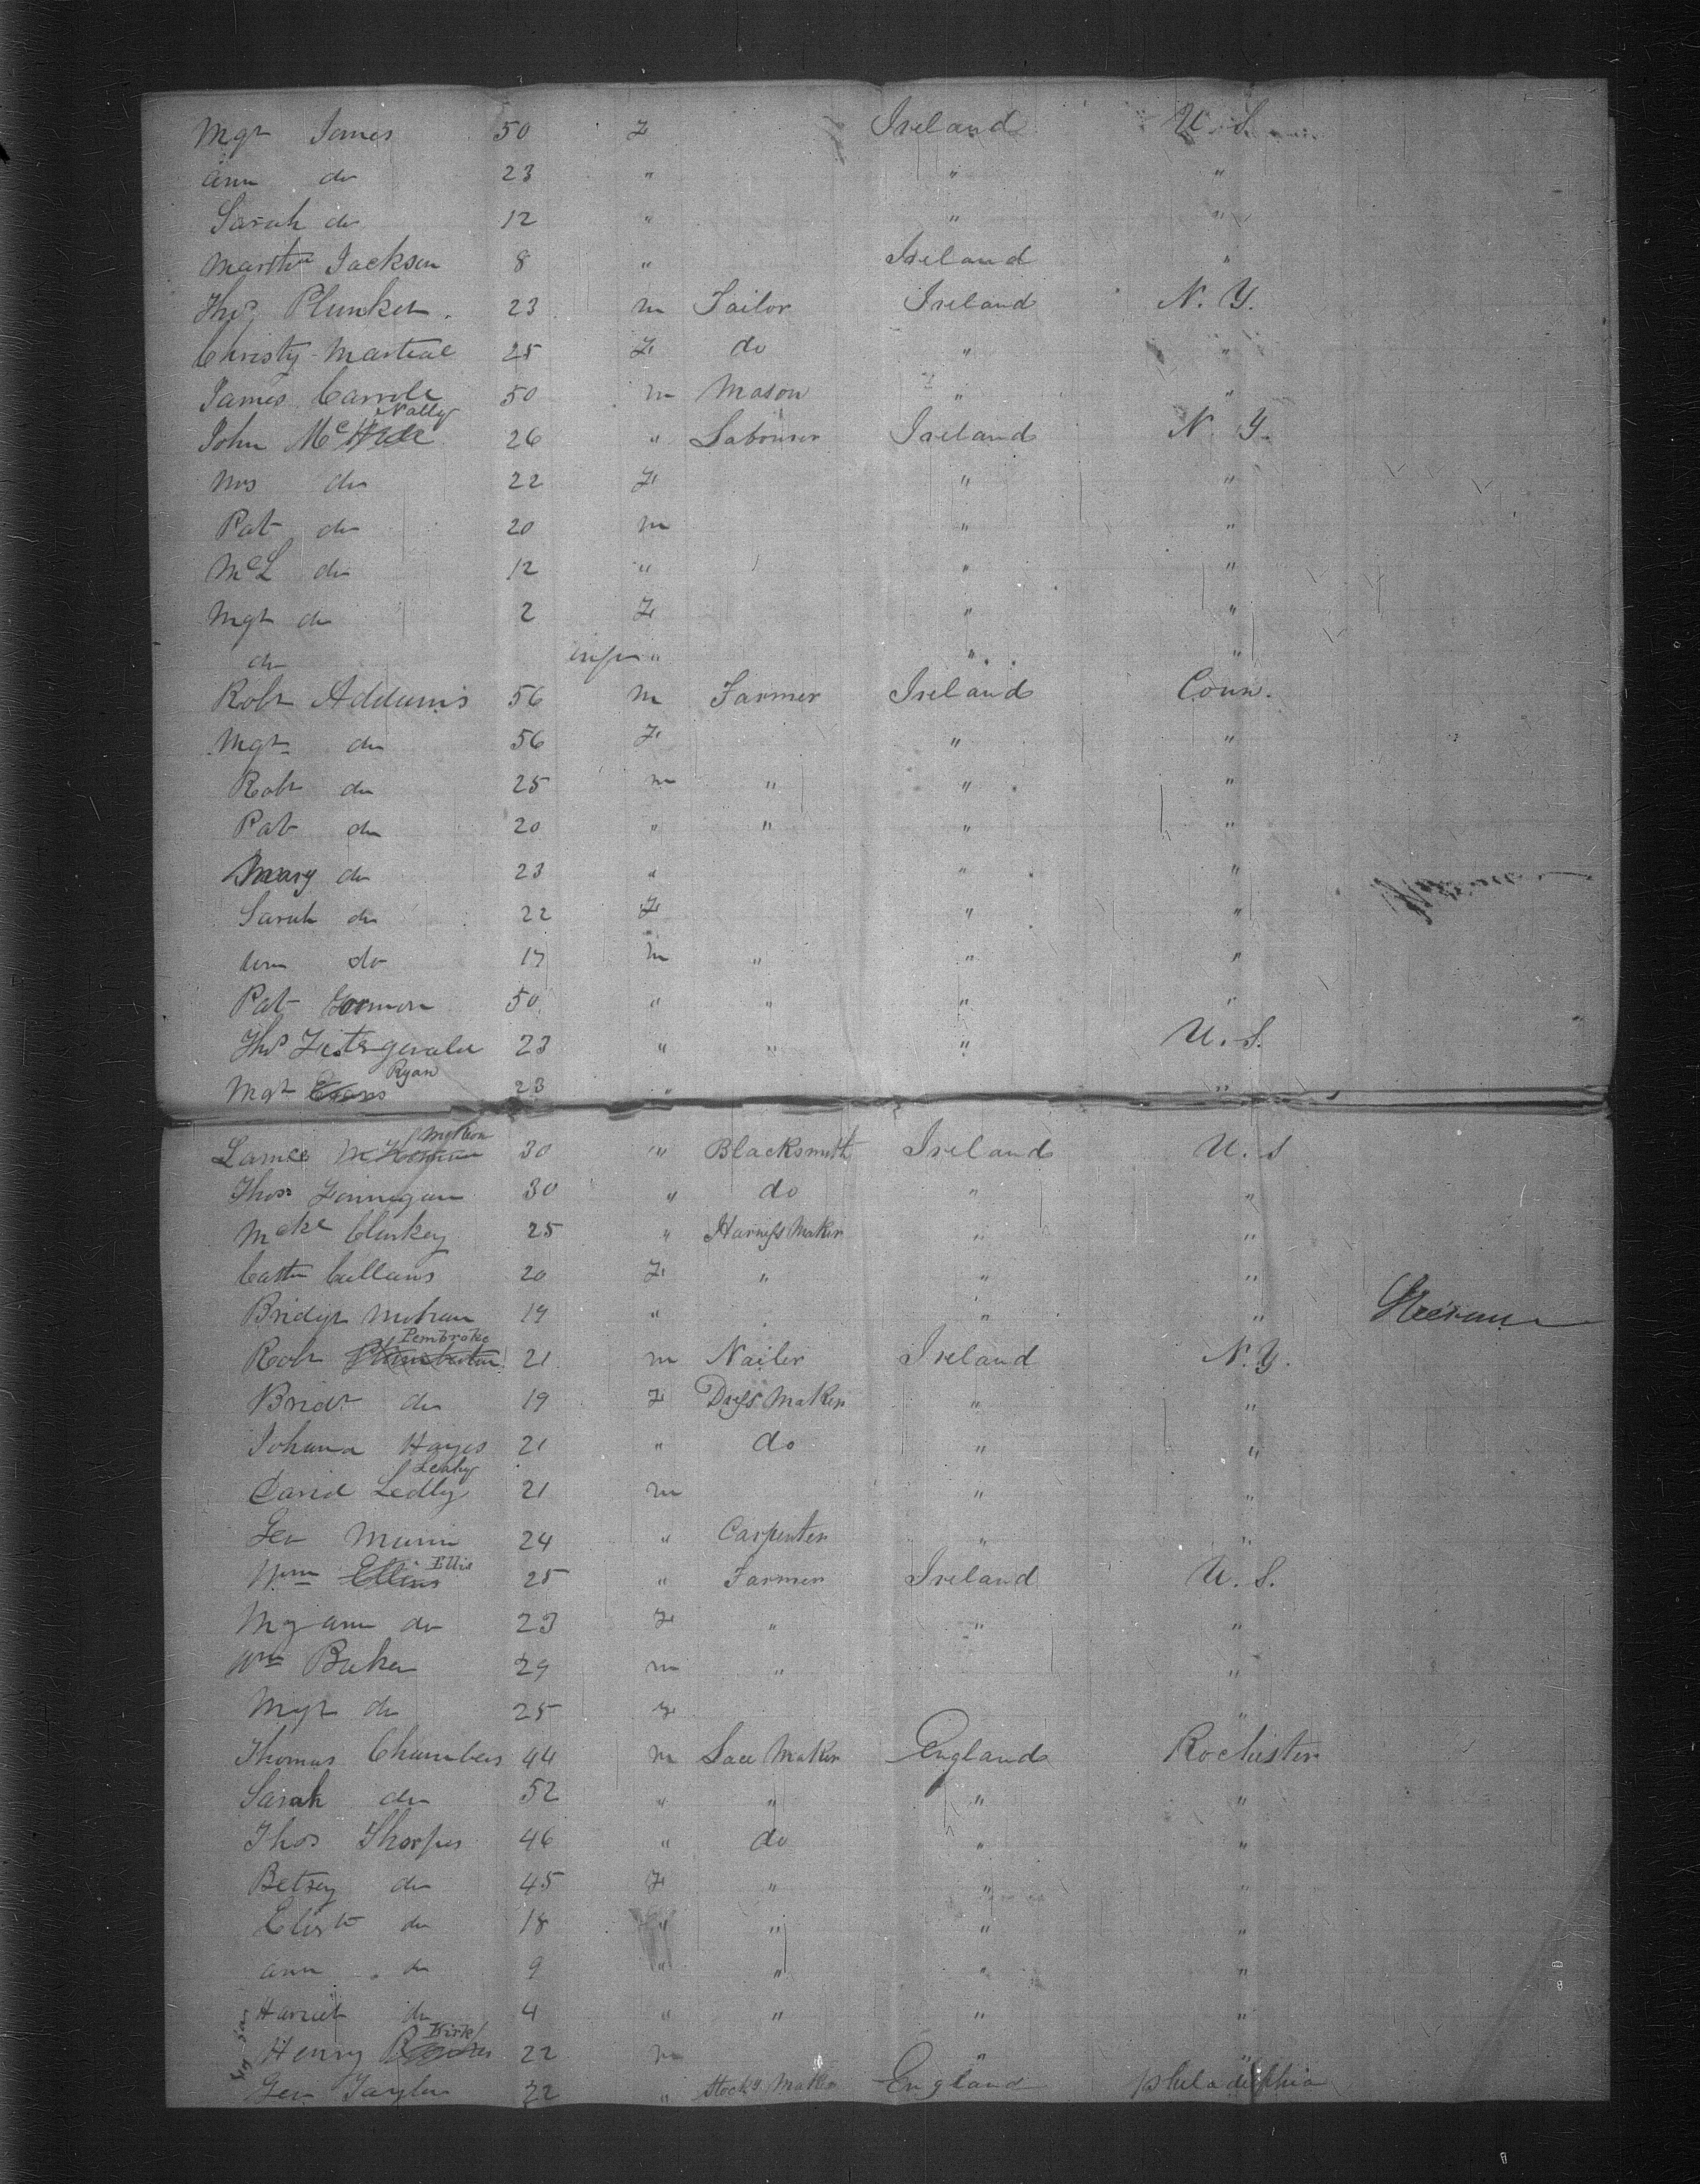 Mgt James 50 F Ireland U. S.
Ann do 23 " " "
Sarah do 12 " " "
Martha Jackson 8 " Ireland "
Thos Plunket 23 m Tailor Ireland N. Y.
Christy Martial 25 F do " "
James Carroll 50 m Mason " "
Nally
John Mc 26 " Labourer Ireland N. Y.
Mrs do 22 F " "
Pat do 20 m " "
McL do 12 " " "
Mgt do 2 F " "
do inft " " "
Robt Addams 56 m Farmer Ireland Conn.
Mgt do 56 F " "
Robt do 25 m " " "
Pat do 20 " " " "
Mary do 23 " " "
Sarah do 22 F " "
Ann do 17 m " " "
Pat 50 " " " "
Thos Fitzgerald 23 " " " U. S.
Ryan
Mgt 23 " "
James 30 " Blacksmith Ireland U. S
Thos Finnegan 30 " do " "
Mche Cluskey 25 " Harness Maker " "
Cathn Cullans 20 F " " "
Bridgt Mohan 19 " " "
Pembroke
Robt 21 m Nailer Ireland N. Y.
Bridt do 19 F Dress Maker " "
Johana Hayes 21 " do " "
Leahy
David Ledlly 21 m " "
Geo Munn 24 " Carpenter " "
Ellis
Wm Ellins 25 " Farmer Ireland U. S.
My ann do 23 F " " "
Wm Baker 29 m " "
Mgt do 25 F "
Thomas Chambers 44 m Lace Maker England Rochister
Sarah do 52 " " " "
Thos Thorpes 46 " do " "
Betsey do 45 F " " "
Elizth do 18 " " " "
ann do 9 " " " "
Harriet do 4 " " " "
Kirk
Henry 22 m " "
Geo Taylor 22 " Stockg Maker England philadelphia